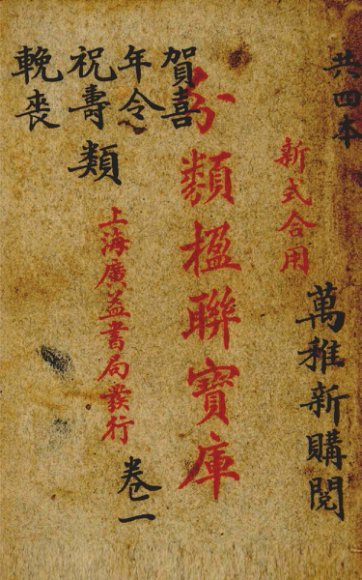 共四本
新式合用
萬稚新購閱
分類楹聯寶庫
賀喜
年令
祝壽
輓喪
類
上海廣益書局發行
卷二